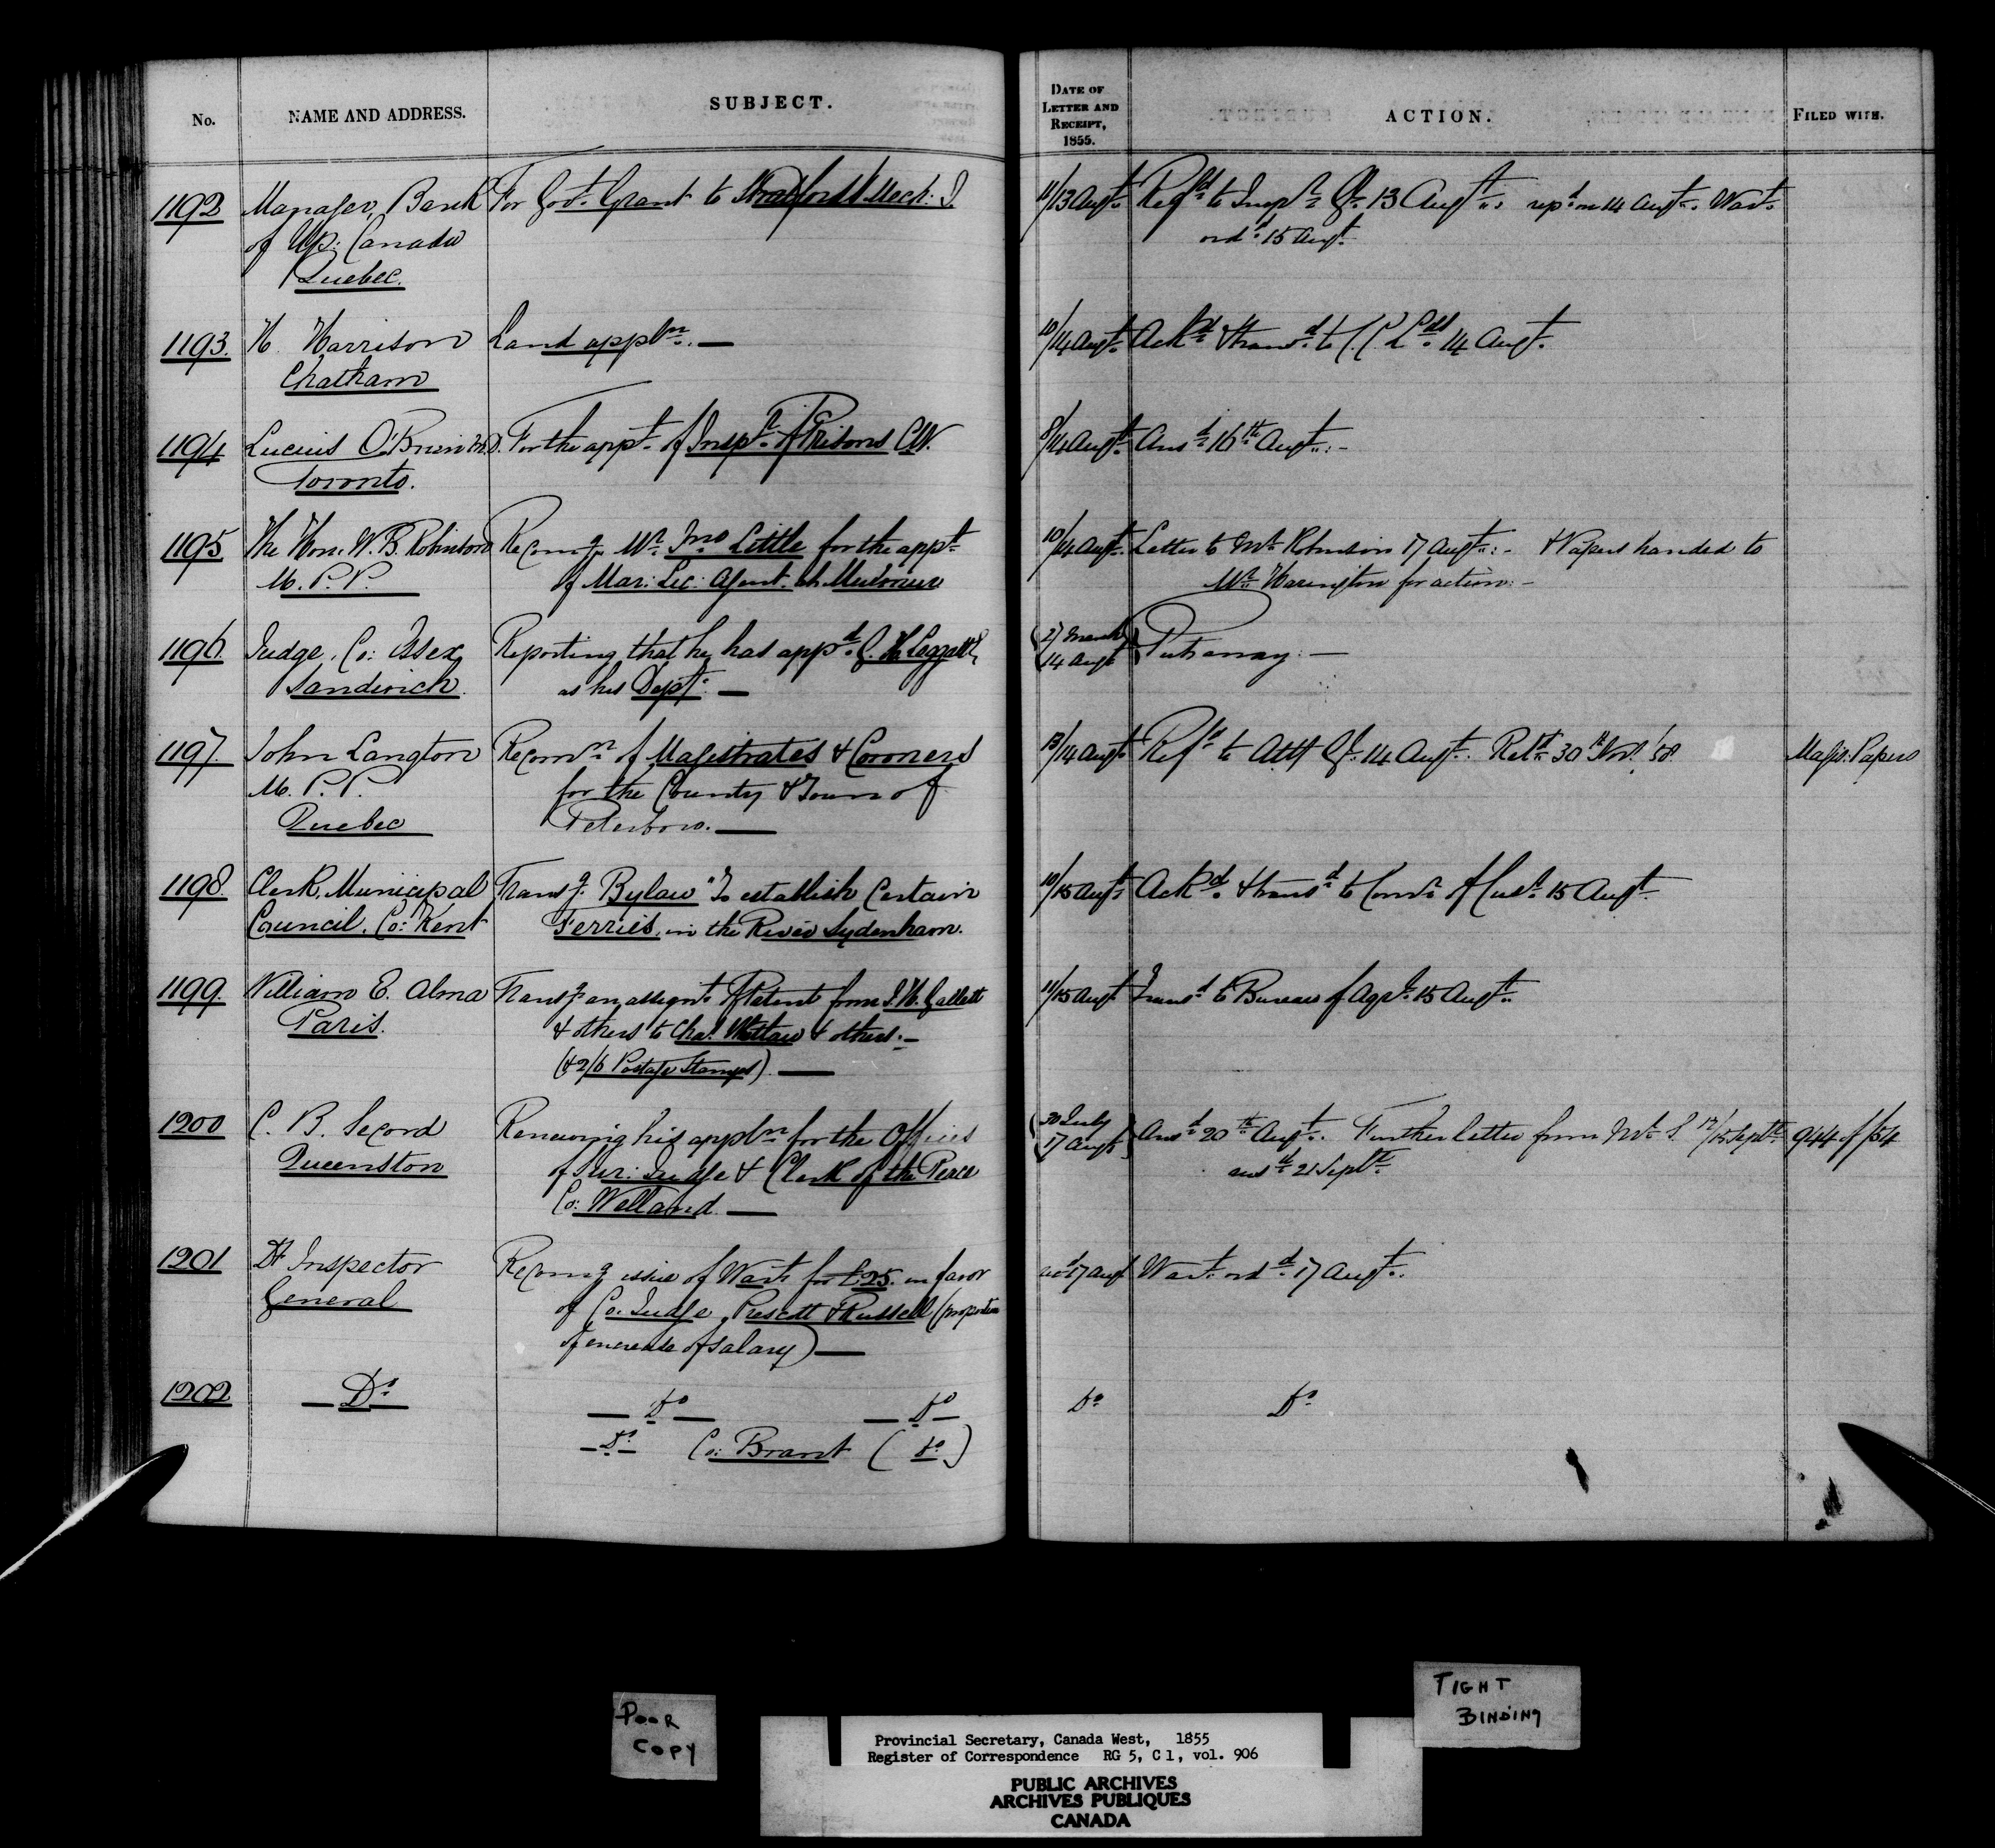 No.
NAME AND ADDRESS.
SUBJECT.
DATE OF
LETTER AND
RECEIPT,
1855.
ACTION.
FILED WITH.
1192
Manager, Bank
of Up: Canada
Quebec.
For Govt. Grant to Stratford Mech: I.
11/13 Augt.
Refd. to Inspr. Gl. 13 Augt. repd. on 14 Augt. Wart.
ordd. 15 Augt.
1193.
H. Harrison
Chatham
Land appln. —
10/14 Augt.
Ackd. & transd. to C. C. Lds. 14 Augt.
1194
Lucius O'Brien M.D.
Toronto.
For the appt. of Inspr. of Prisons C.W.
8/14 Augt.
Ansd. 16th. Augt. -
1195
The Hon. W. B. Robinson
M. P. P.
Recomg. Mr. Jno Little for the appt.
of Mar: Lic: Agent at
10/14 Augt.
Letter to Mr. Robinson 17 Augt. - & Papers handed to
Mr. Harington for action: -
1196.
Judge, Co: Essex
Sandwich.
Reporting that he has appd. G. W. Leggatt,
as his Dept. —
27 March
14 Augt
Put away. —
1197.
John Langton
M. P. P.
Quebec
Recomn. of Magistrates & Coroners
for the County & Town of
Peterboro. —
13/14 Augt.
Refd. to Att Gl. 14 Augt. Retd. 30th. Novr. '58.
Magis: Papers
1198.
Clerk, Municipal
Council, Co: Kent
Transg. Bylaw "To establish Certain
Ferries, in the River Sydenham.
10/15 Augt.
Ackd. & transd. to Comr. of Cus. 15 Augt.
1199.
William E. Alma
Paris.
Transg. an assignt. of Patent from J. H. Gallett
& others to Chas. Whitlaw & others. —
(& 2/6 Postage Stamps) —
11/15 Augt.
Transd. to Bureau of Agrl. 15 Augt.
1200
C. B. Secord
Queenston
Renewing his appln. for the Offices
of Sur: Judge & Clerk of the Peace
Co: Welland. —
30 July
17 Augt
Ansd. 20th. Augt. Further letter from Mr. S. 12/15 Septr.
ansd. 21 Septr.
944 of /54
1201
Dt. Inspector
General
Recomg. issue of Wart. for £25. in favor
of Co: Judge, Prescott & Russell (proportion
of increase of salary) —
recd 17 Augt
Wart. ordd. 17 Augt.
1202
— Do. —
— Do — — Do —
— Do. — Co: Brant ( Do. )
Do.
Do.
POOR
COPY
TIGHT
BINDING
Provincial Secretary, Canada West, 1855
Register of Correspondence RG 5, C 1, vol. 906
PUBLIC ARCHIVES
ARCHIVES PUBLIQUES
CANADA